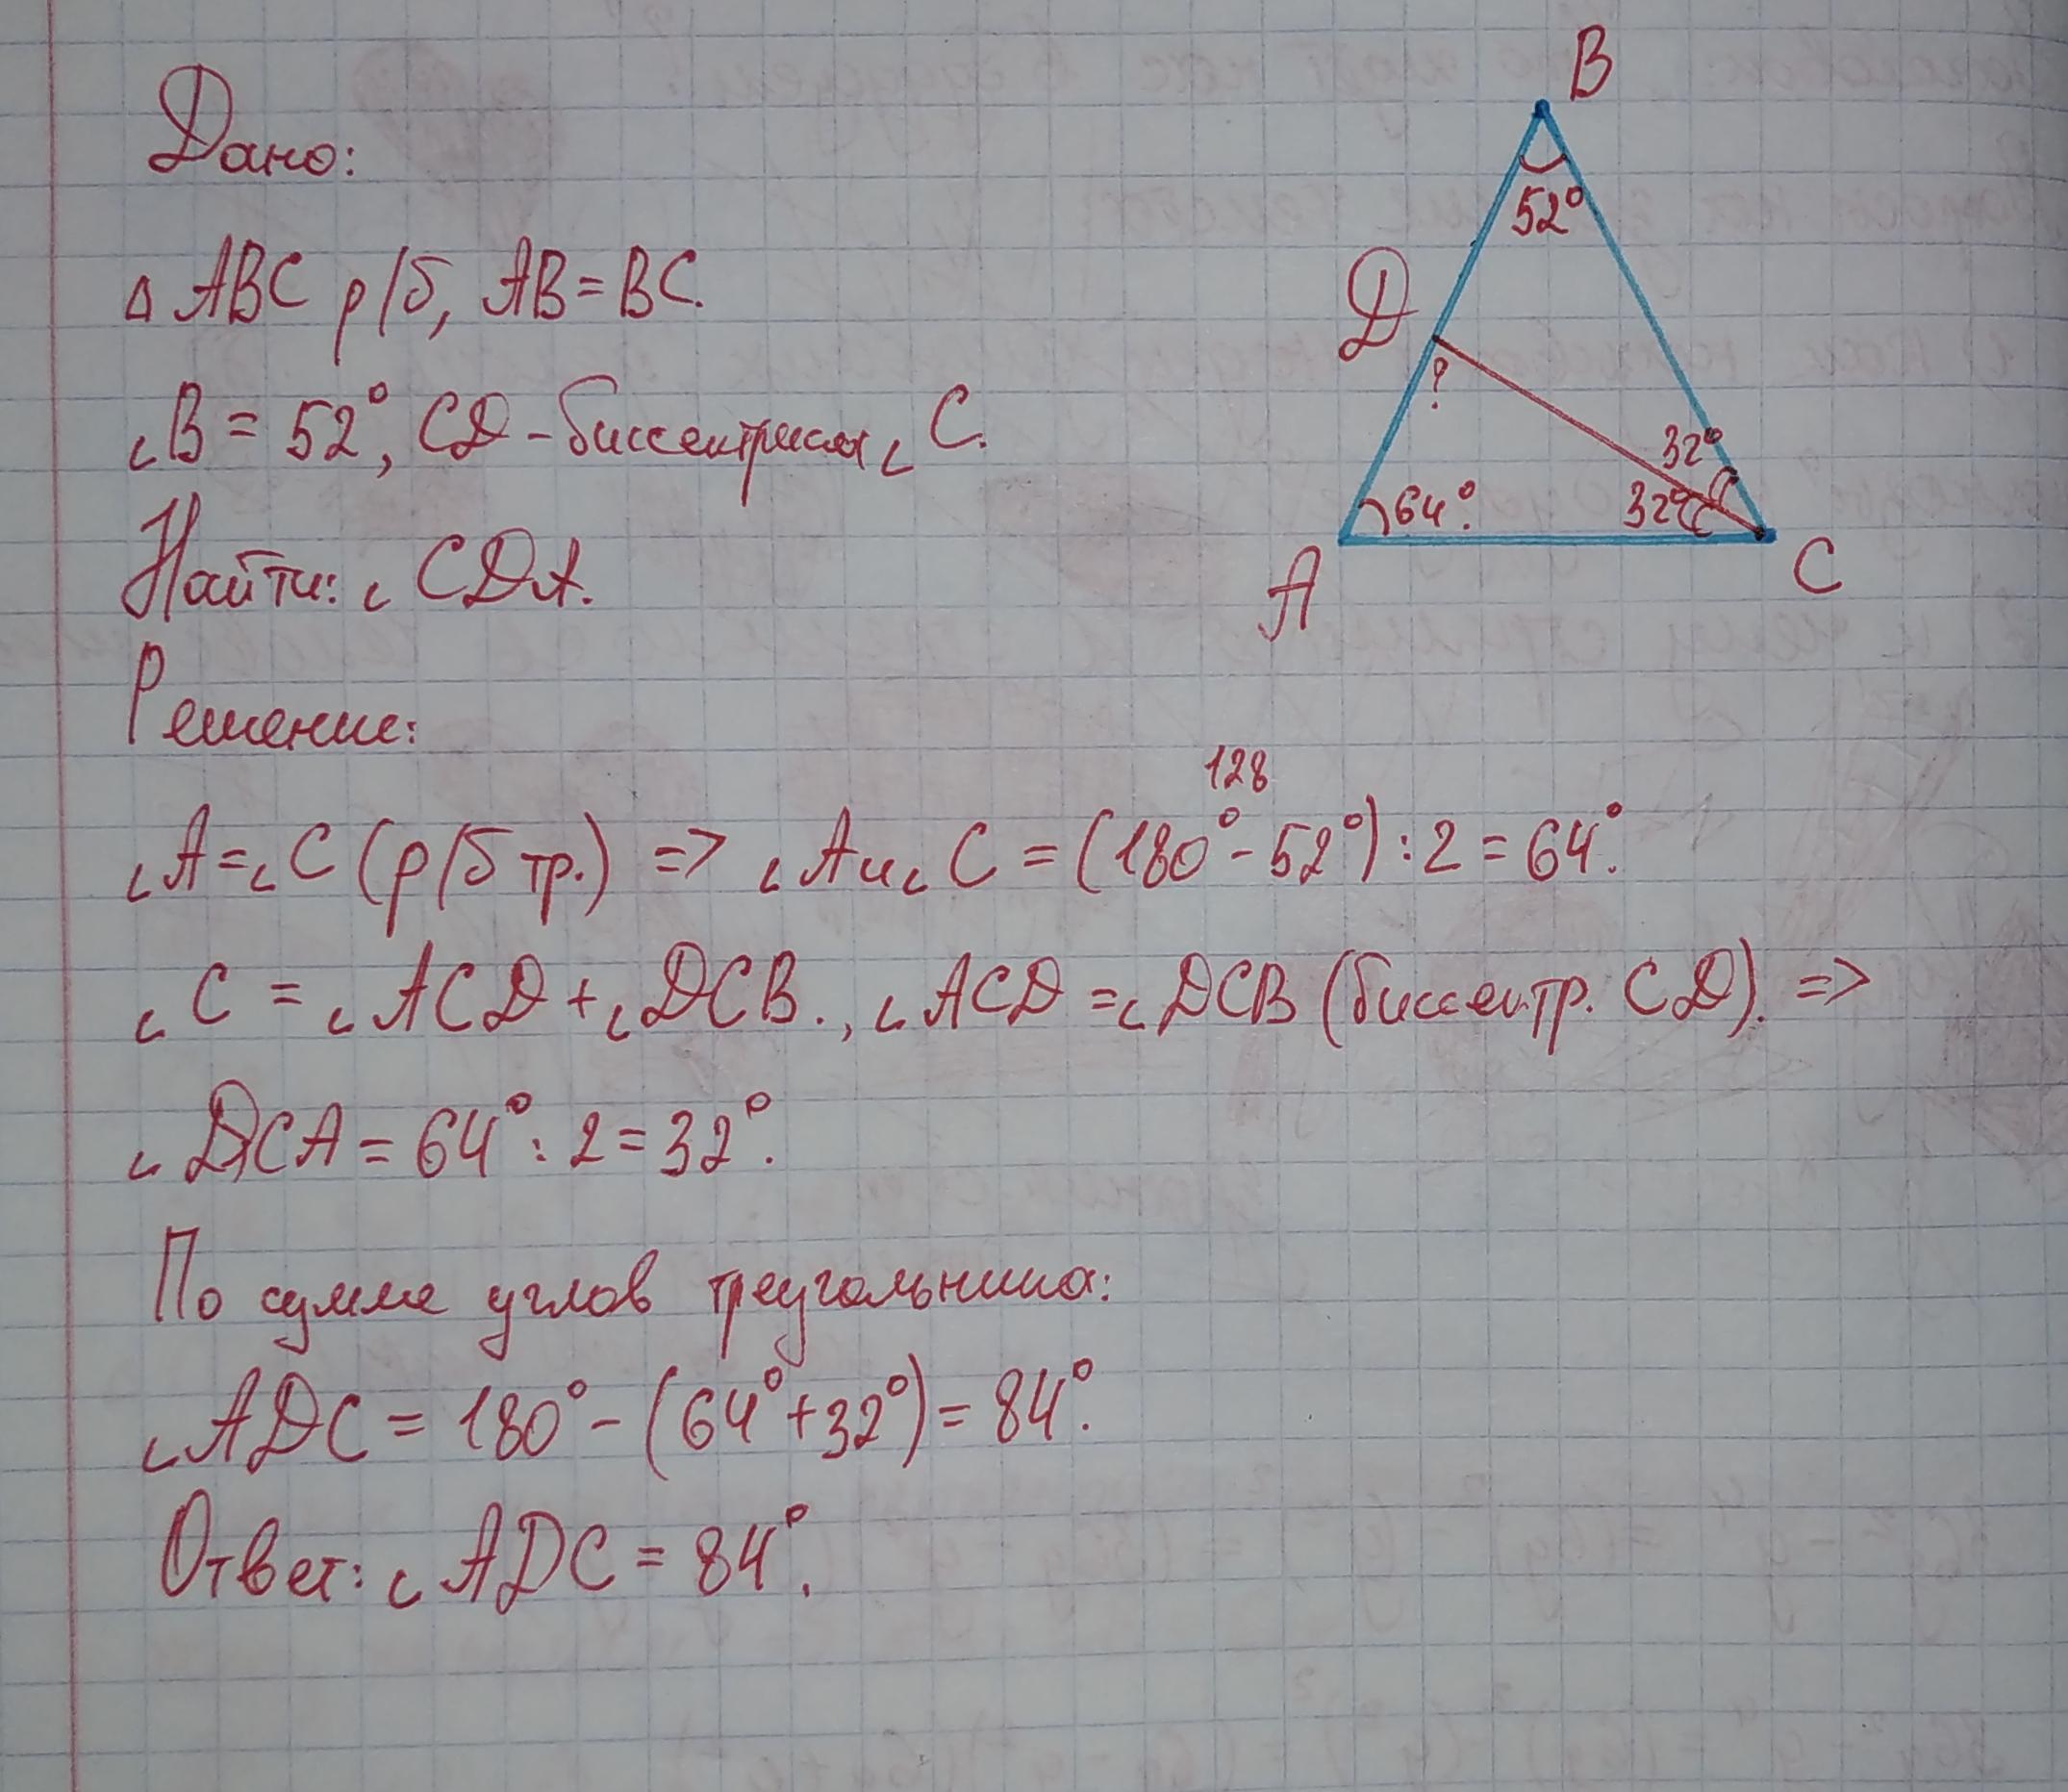 Дано:
Δ ABC р/б, AB = BC.
∠B = 52°, CD - биссектриса ∠C.
Найти: ∠CDA.
Решение:
128
∠A = ∠C (р/б тр.) => ∠A и ∠C = (180° - 52°) : 2 = 64°.
∠C = ∠ACD + ∠DCB., ∠ACD = ∠DCB (биссектр. CD). =>
∠DCA = 64° : 2 = 32°.
По сумме углов треугольника:
∠ADC = 180° - (64° + 32°) = 84°.
Ответ: ∠ADC = 84°.
B
52°
D
?
32°
64°.
32°
A
C